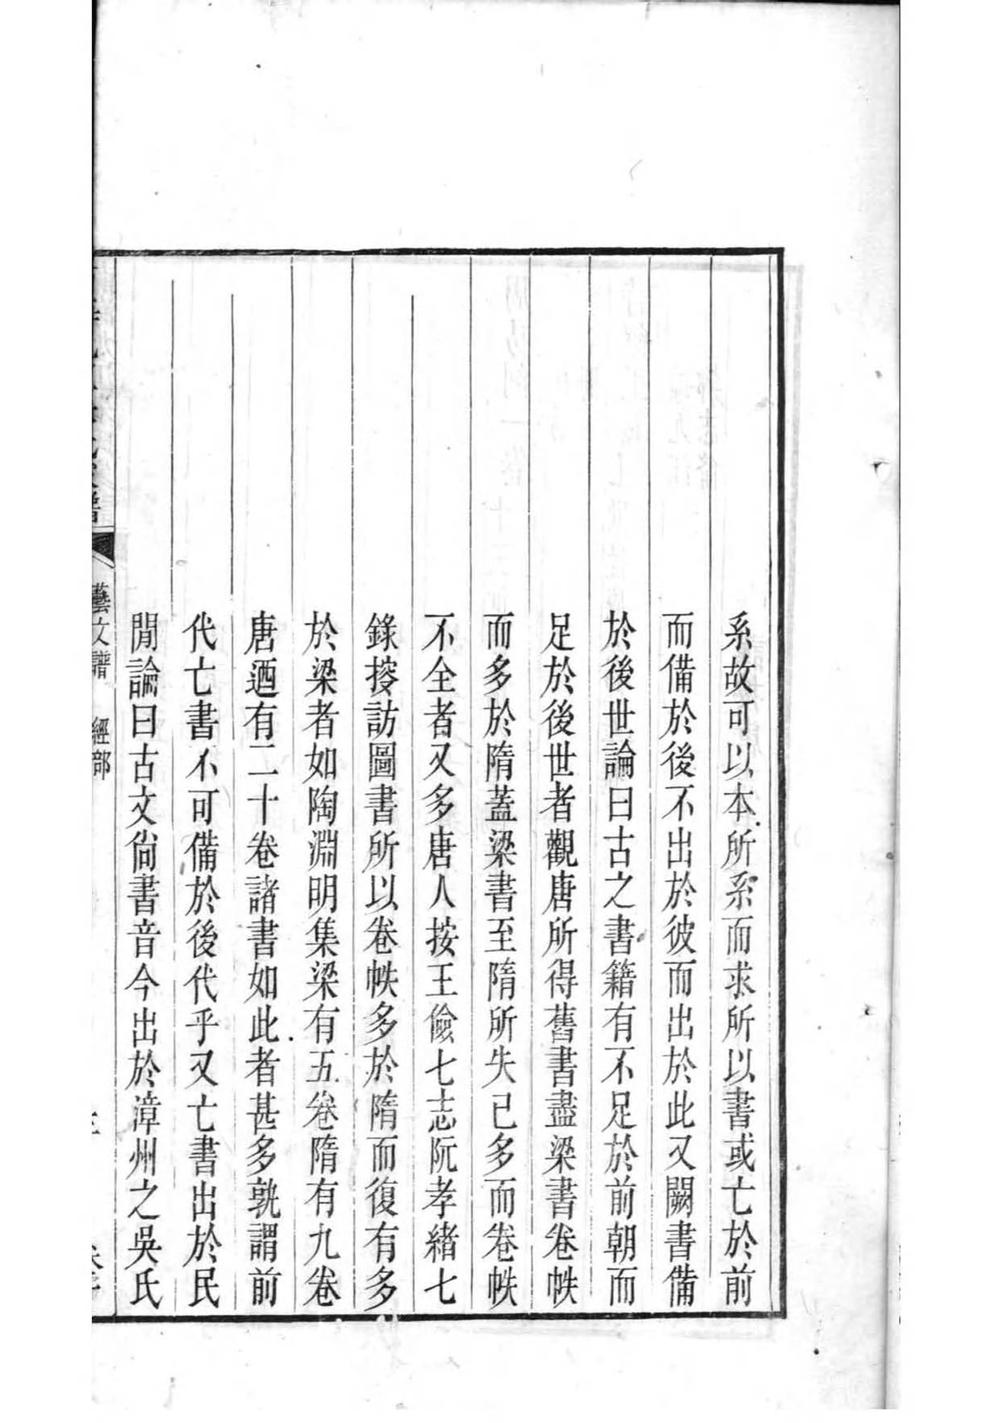 系故可以本所系而求所以書或亡於前
而備於後不出於彼而出於此又闕書備
於後世論曰古之書籍有不足於前朝而
足於後世者觀唐所得舊書盡梁書卷帙
而多於隋蓋梁書至隋所失已多而卷帙
不全者又多唐人按王儉七志阮孝緒七
錄搜訪圖書所以卷帙多於隋而復有多
於梁者如陶淵明集梁有五卷隋有九卷
唐迺有二十卷諸書如此者甚多孰謂前
代亡書不可備於後代乎又亡書出於民
閒論曰古文尙書音今出於漳州之吳氏
藝文譜 經部